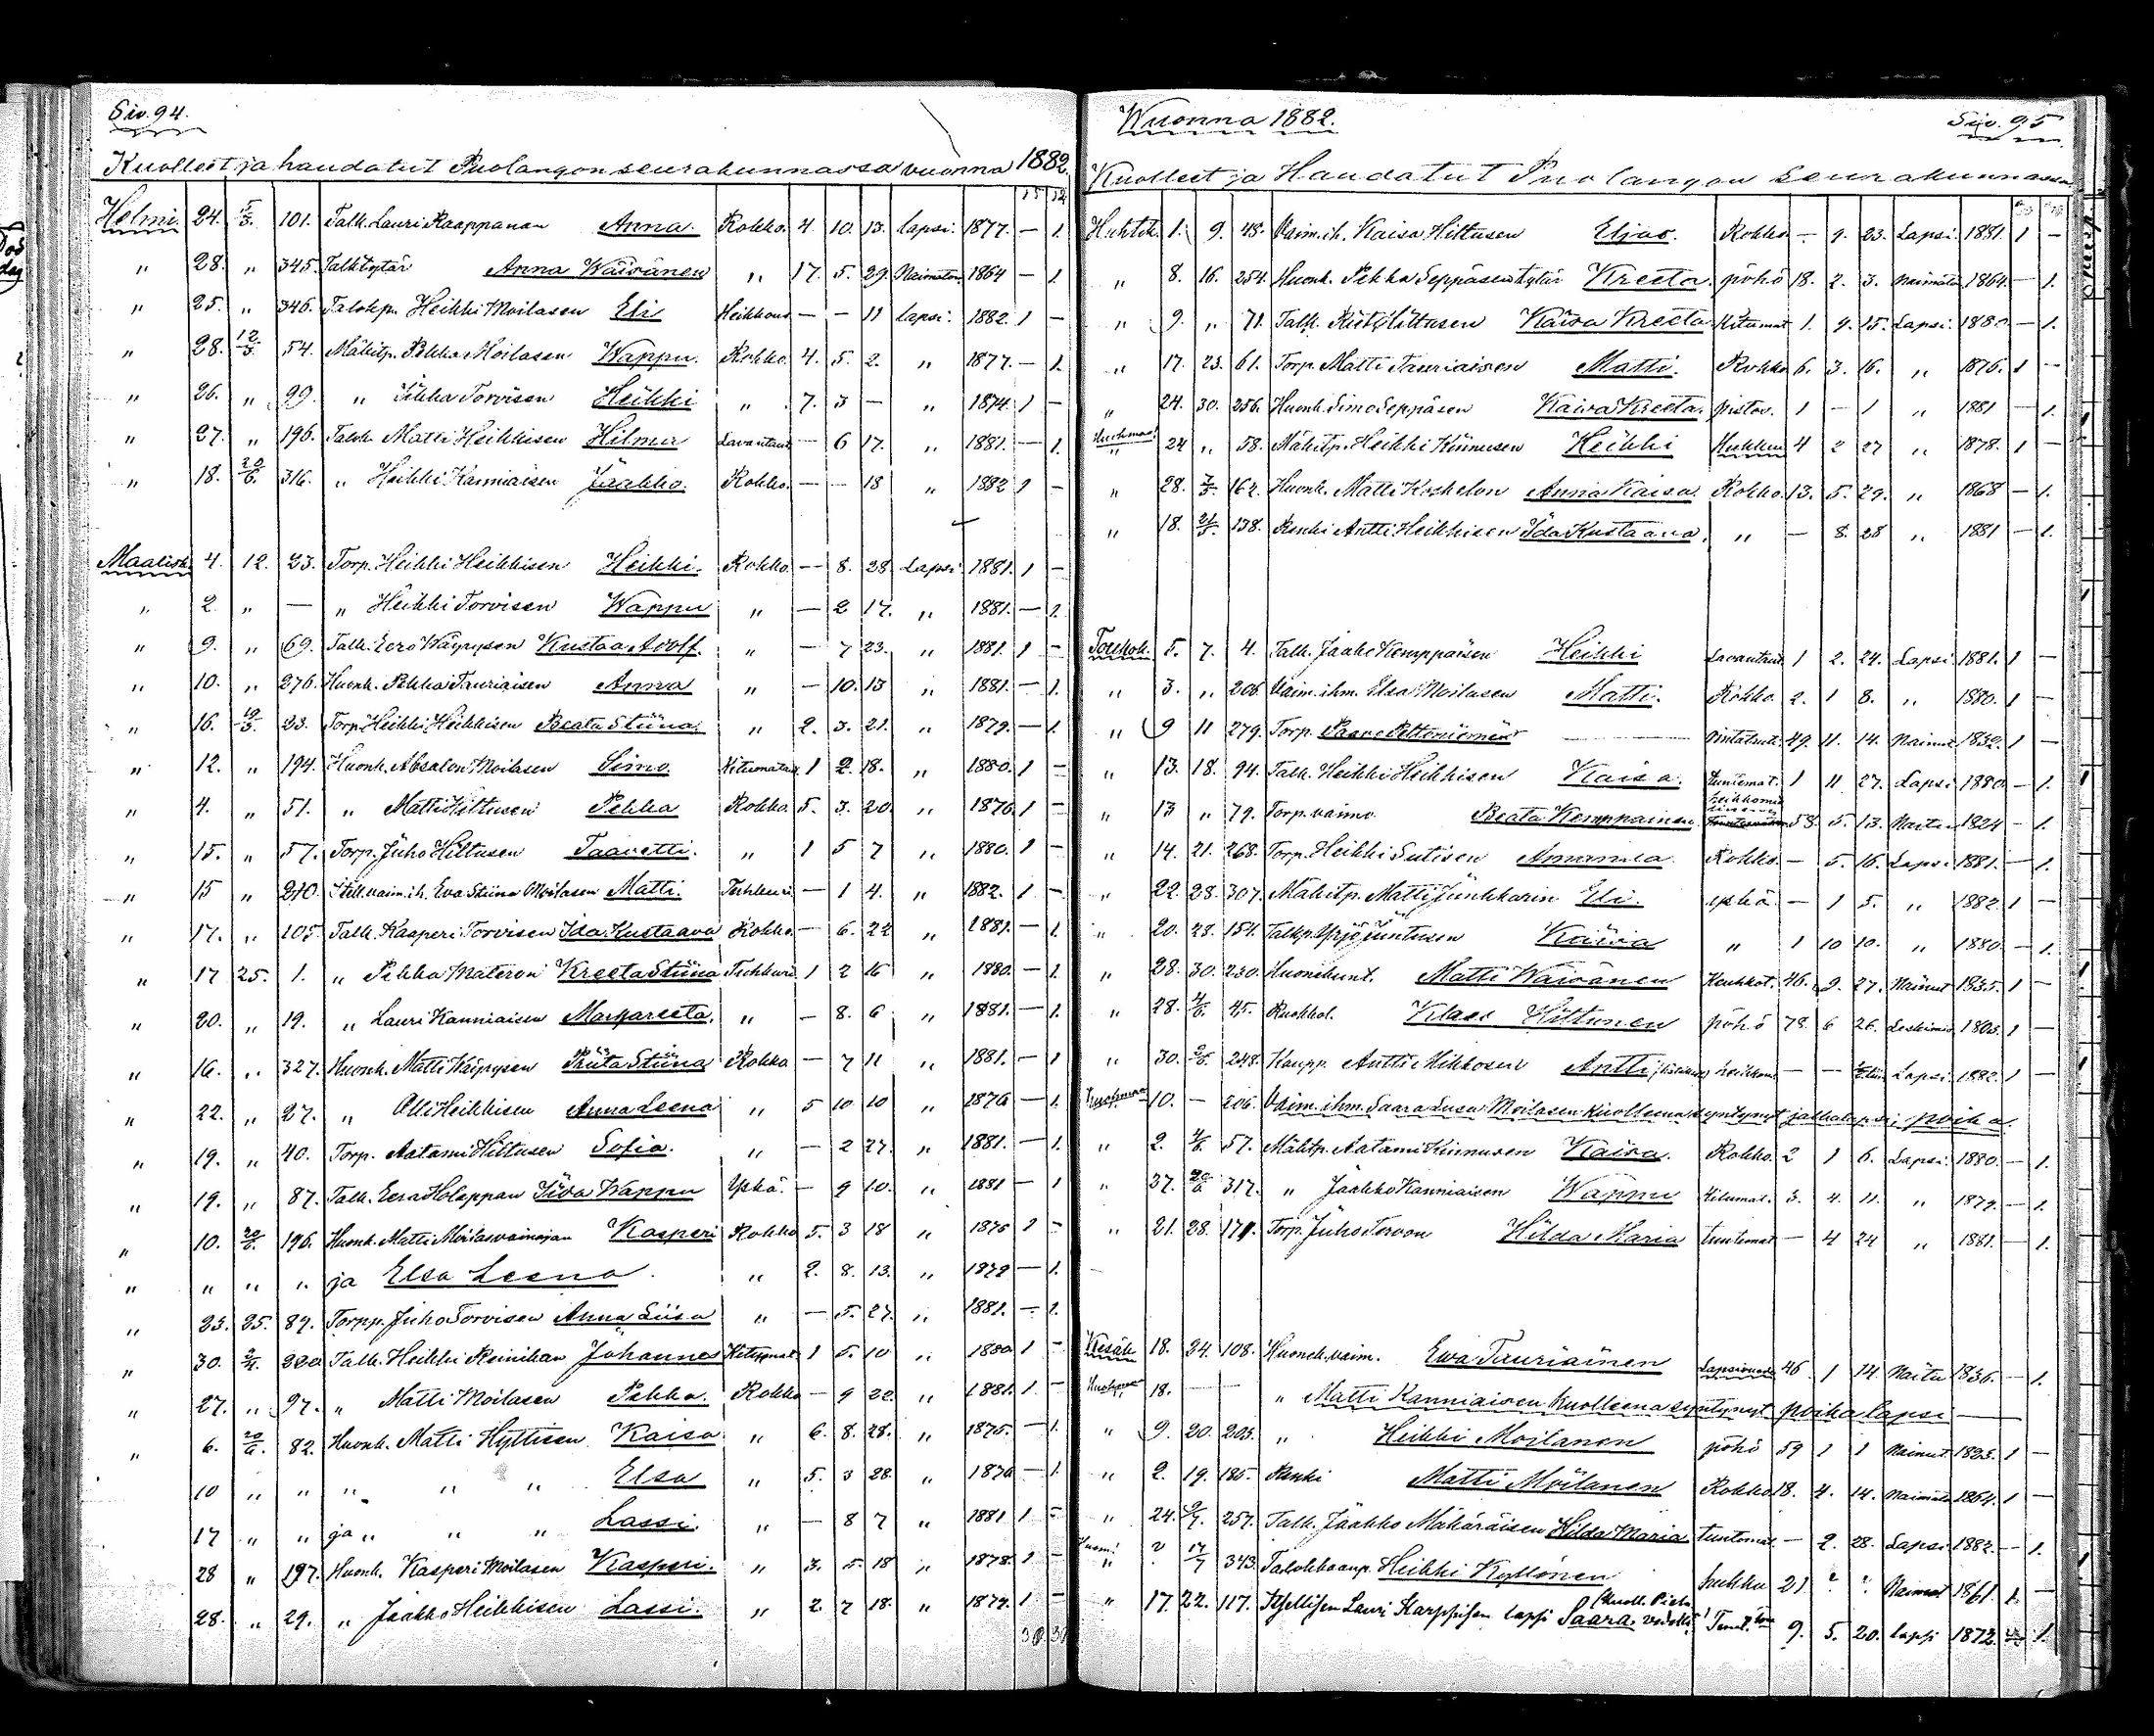 Siv. 94.
Kuolleet ja haudatut Puolangon seurakunnassa vuonna 1882.
15 12
Helmi. 24. 5/3. 101. Talk. Lauri Kaappanan Anna. Rokko. 4. 10. 13. Lapsi. 1877. — 1.
" 28. " 345. Talk tytär Anna Wäisänen " 17. 5. 29. Naimaton. 1864 — 1.
" 25. " 346. Talokp. Heikki Moilasen Eli Heikkous — — 11 Lapsi. 1882. 1 —
" 28. 12/3. 54. Mäkitp. Pekka Moilasen Wappu. Rokko. 4. 5. 2. " 1877. — 1.
" 26. " 99. " Iikka Torvisen Heikki " 7. 3 — " 1874. 1 —
" 27. " 196. Talok. Matti Heikkisen Hilma Lavantaut — 6 17. " 1881. — 1.
" 18. 20/6. 316. " Heikki Kanniaisen Jaakko. Rokko. — — 18 " 1882 1 —
Maalisk. 4. 12. 23. Torp. Heikki Heikkisen Heikki. Rokko — 8. 28 Lapsi. 1881. 1 —
" 2. " — " Heikki Torvisen Wappu " — 2 17. " 1881. — 1.
" 9. " 69. Talk. Eero Wäyrysen Kustaa Adolf. " — 7 23. " 1881. 1 —
" 10. " 276. Huonk. Pekka Tauriaisen Anna " — 10. 13 " 1881. — 1.
" 16. 19/3. 23. Torp. Heikki Heikkisen Beata Stiina. " 2. 3. 21. " 1879. — 1.
" 12. " 194. Huonk. Absalon Moilasen Simo. Kitumataut 1 2. 18. " 1880. 1 —
" 4. " 51. " Matti Hiltusen Pekka Rokko. 5. 3. 20. " 1876. 1 —
" 15. " 57. Torp. Juho Hiltusen Taavetti. " 1 5 7 " 1880. 1 —
" 15 " 210. Itell. vaim. ih. Eva Stiina Moilasen Matti. Tuhkuri. — 1 4. " 1882. 1 —
" 17. " 105. Talk. Kaaperi Torvisen Ida Kustaava Rokko. — 6. 22 " 1881. — 1.
" 17 25. 1. " Pekka Materon Kreeta Stiina Tuhkuri. 1 2 16 " 1880. — 1.
" 20. " 19. " Lauri Kanniaisen Markareeta. " — 8. 6 " 1881. — 1.
" 16. " 327. Huonk. Matti Wäyrysen Priita Stiina Rokko — 7 11 " 1881. — 1
" 22. " 27. " Olli Heikkisen Anna Leena " 5 10 10 " 1876 — 1.
" 19. " 40. Torp. Aatami Hiltusen Sofia. " — 2 27. " 1881. — 1.
" 19. " 87. Talk. Eera Holappan Iida Wappu Yskä. — 9 10. " 1881 — 1
" 10. 20/6. 196. Huonk. Matti Moilasvainajan Kasperi Rokko 5. 3 18 " 1876 1 —
" " " " ja Elsa Leena. " 2. 8. 13. " 1879 — 1.
" 23. 25. 89. Torpp. Juho Torvisen Anna Liisa " — 5. 27. " 1881. — 1.
" 30. 2/4. 220 Talk. Heikki Reinikan Johannes Kitumat. 1 5. 10 " 1880 1 —
" 27. " 97. " Matti Moilasen Pekka. Rokko — 9 22. " 1881. 1 —
" 6. 20/6. 82. Huonk. Matti Hyttisen Kaisa " 6. 8. 28. " 1875. — 1.
10 " " " " " Elsa " 5. 3 28. " 1876 — 1.
17 " " ja " " " Lassi. " — 8 7 " 1881 1 —
28 " 197. Huonk. Kasperi Moilasen Kasperi. " 3. 5. 18 " 1878. 1 —
28. " 29. " Jaakko Heikkisen Lassi. " 2. 7 18. " 1879. 1 —
Wuonna 1882.
Siv. 95
Kuolleet ja Haudatut Puolangon seurakunnassa
Huhtik. 1. 9. 48. Vaim. ih. Kaisa Hiltusen Elias. Rokko — 9. 23. Lapsi. 1881. 1 —
" 8. 16. 254. Huonk. Pekka Seppäsen tytär Kreeta. pöhö 18. 2. 3. Naimato 1864. — 1.
" 9. " 71. Talk. Risto Hiltusen Kaisa Kreeta Kitumat 1. 9. 15. Lapsi. 1880. — 1.
" 17. 23. 61. Torp. Matti Tauriaisen Matti. Rokko 6. 3. 16. " 1876. 1 —
" 24. 30. 256. Huonk. Simo Seppäsen Kaisa Kreeta. pistos. 1 — 1 " 1881 — 1.
" 24 " 58. Mäkitp. Heikki Kinnusen Heikki Hukkun 4 2 27 " 1878. 1 —
" 28. 7/5. 162. Huonk. Matti Koskelon Anna Kaisa. Rokko. 13. 5. 29. " 1868 — 1.
" 18. 21/5. 138. Renki Antti Heikkisen Ida Kustaava. " — 8. 28 " 1881 — 1.
Toukok. 5. 7. 4. Talk. Jaako Kemppaisen Heikki Lavantaut 1 2. 24. Lapsi 1881. 1 —
" 3. " 206 Vaim. ihm. Elsa Moilasen Matti. Rokko. 2. 1 8. " 1880. 1 —
" 9 11 279. Torp. Paavo Peltoniemen Rintataut. 49. 11. 14. Nainut 1832. 1 —
" 13. 18. 94. Talk. Heikki Heikkisen Kaisa. Tuntemat. 1 11 27. Lapsi 1880 — 1.
" 13 " 79. Torp. vaimo. Beata Kemppainen 58. 5. 13. Naitu 1824 — 1.
" 14. 21. 268. Torp. Heikki Sutisen Annamia. Rokko. — 5. 16. Lapsi 1881. — 1.
" 22. 28. 307. Mäkitp. Matti Junkkarin Eli. yskä. — 1 5. " 1882. 1 —
" 20. 28. 151. Talkp. Yrjö Juntusen Kaisa " 1 10 10. " 1880. — 1.
" 28. 30. 230. Huonekunt. Matti Wäisänen Keuhkot. 46. 9. 27. Nainut 1835. 1 —
" 28. 4/6. 45. Ruokkol. Klaes Hiltunen pöhö 78. 6 26. Leskimies 1803. 1 —
" 30. 248. Kaupp. Antti Mikkosen Antti heikkous — — Lapsi. 1882. 1 —
10. — 206. Vaim. ihm. Saara Liisa Moilasen kuolleena syntynyt jalkalapsi, poika.
" 2. 4/6 57. Mäkitp. Aatami Kinnusen Kaisa. Rokko. 2 1 6. Lapsi. 1880. — 1.
" 27. 20/6 317. " Jaakko Kanniaisen Wappu Kitumat. 3. 4. 11. " 1879. — 1.
" 21. 28. 171. Torp. Juho Tervon Hilda Maria tuntemat — 4 24 " 1881. — 1.
Kesäk. 18. 24. 108. Huonek. vaim. Ewa Tauriainen Lapsivuode 46. 1 14. Naitu 1836. — 1.
18. — — " Matti Kanniaisen kuolleena syntynyt poika lapsi —
" 9. 20. 203. " Heikki Moilanen pöhö 59 1 1 Nainut 1823. 1 —
" 2. 19. 185. Renki Matti Moilanen Rokko 18. 4. 14. Naimato 1864. 1 —
" 24. 9/7. 257. Talk. Jaakko Mäkäräisen Hilda Maria tuntemat. — 2. 28. Lapsi 1882. — 1.
" ? 17/7 343. Talokkaanp. Heikki Kyllönen hukku 21 ? ? Naimat 1861. 1.
" 17. 22. 117. Itsellisen Lauri Karppisen lapsi Saara. 9. 5. 20. lapsi 1872. 1.